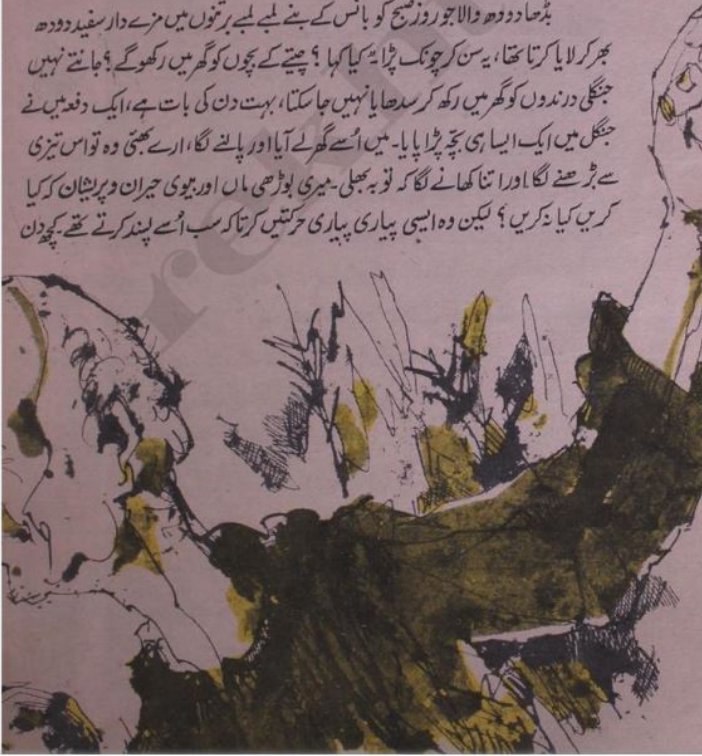 بڈھا دودھ والا جو روز صبح کو بانس کے بنے لمبے لمبے برتنوں میں مزے دار سفید دودھ
بھر کر لایا کرتا تھا، یہ سن کر چونک پڑا یہ کیا کہا ؟ چیتے کے بچوں کو گھر میں رکھو گے ؟ جانتے نہیں
جنگلی درندوں کو گھر میں رکھ کر سدھایا نہیں جا سکتا، بہت دن کی بات ہے، ایک دفعہ میں نے
جنگل میں ایک ایسا ہی بچہ پڑا پایا۔ میں اُسے گھر لے آیا اور پالنے لگا، ارے بھئی وہ تو اس تیزی
سے بڑھنے لگا اور اتنا کھانے لگا کہ توبہ بھلی۔ میری بوڑھی ماں اور بیوی حیران و پریشان کہ کیا
کریں کیا نہ کریں ؟ لیکن وہ ایسی پیاری پیاری حرکتیں کرتا کہ سب اُسے پسند کرتے تھے۔ کچھ دن
rekh